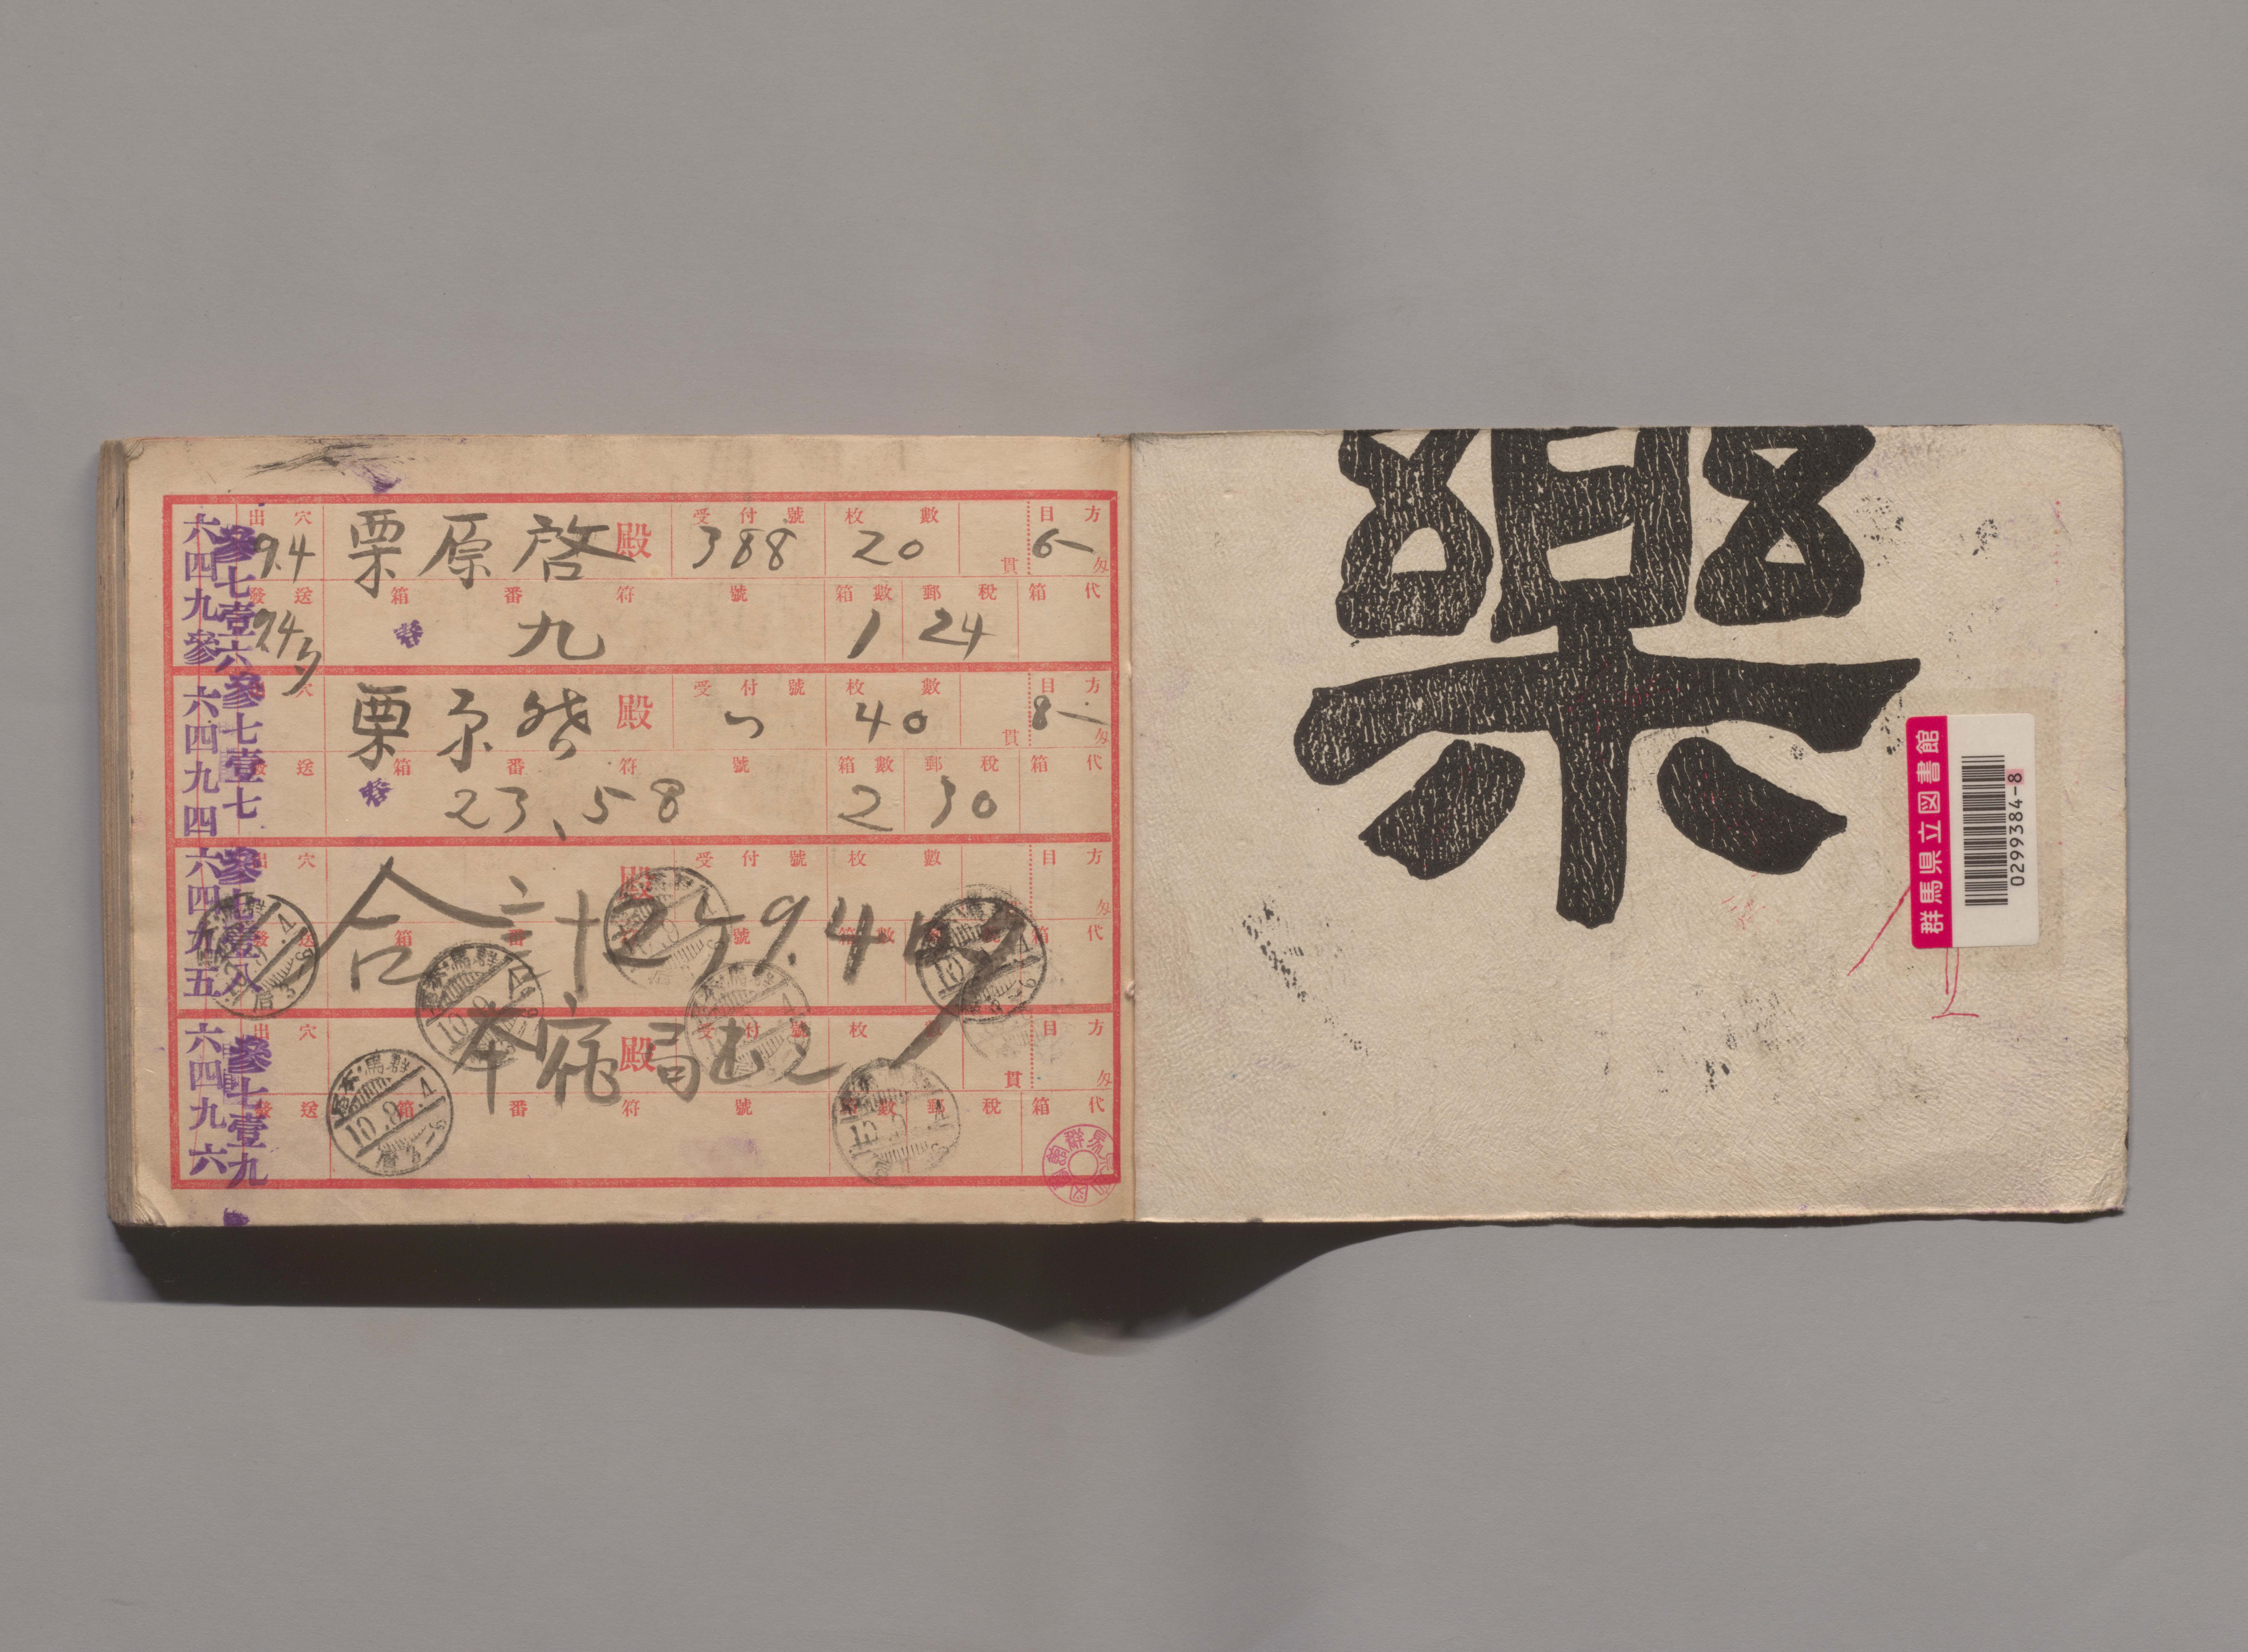 出穴 栗原啓殿 受付號 388 枚數 20 貫 目方 6 匁
9.4
六四九參
參七壹六
發送 箱番符號 九 箱數 1 郵稅 24 箱代
9.4夕
穴 栗原啓殿 受付號 〃 枚數 40 貫 目方 8 匁
六四九四
參七壹七
發送 箱番符號 23、58 箱數 2 郵稅 30 箱代
出穴 殿 受付號 枚數 目方 匁
六四九五
參七壹八
合計
發送 箱番符號 箱數 郵稅 箱代
出穴 殿 受付號 枚數 貫 目方 匁
六四九六
參七壹九
本宿局
發送 箱番符號 箱數 郵稅 箱代
群馬・本宿
10.9.4
樂
群馬県立図書館
0299384-8